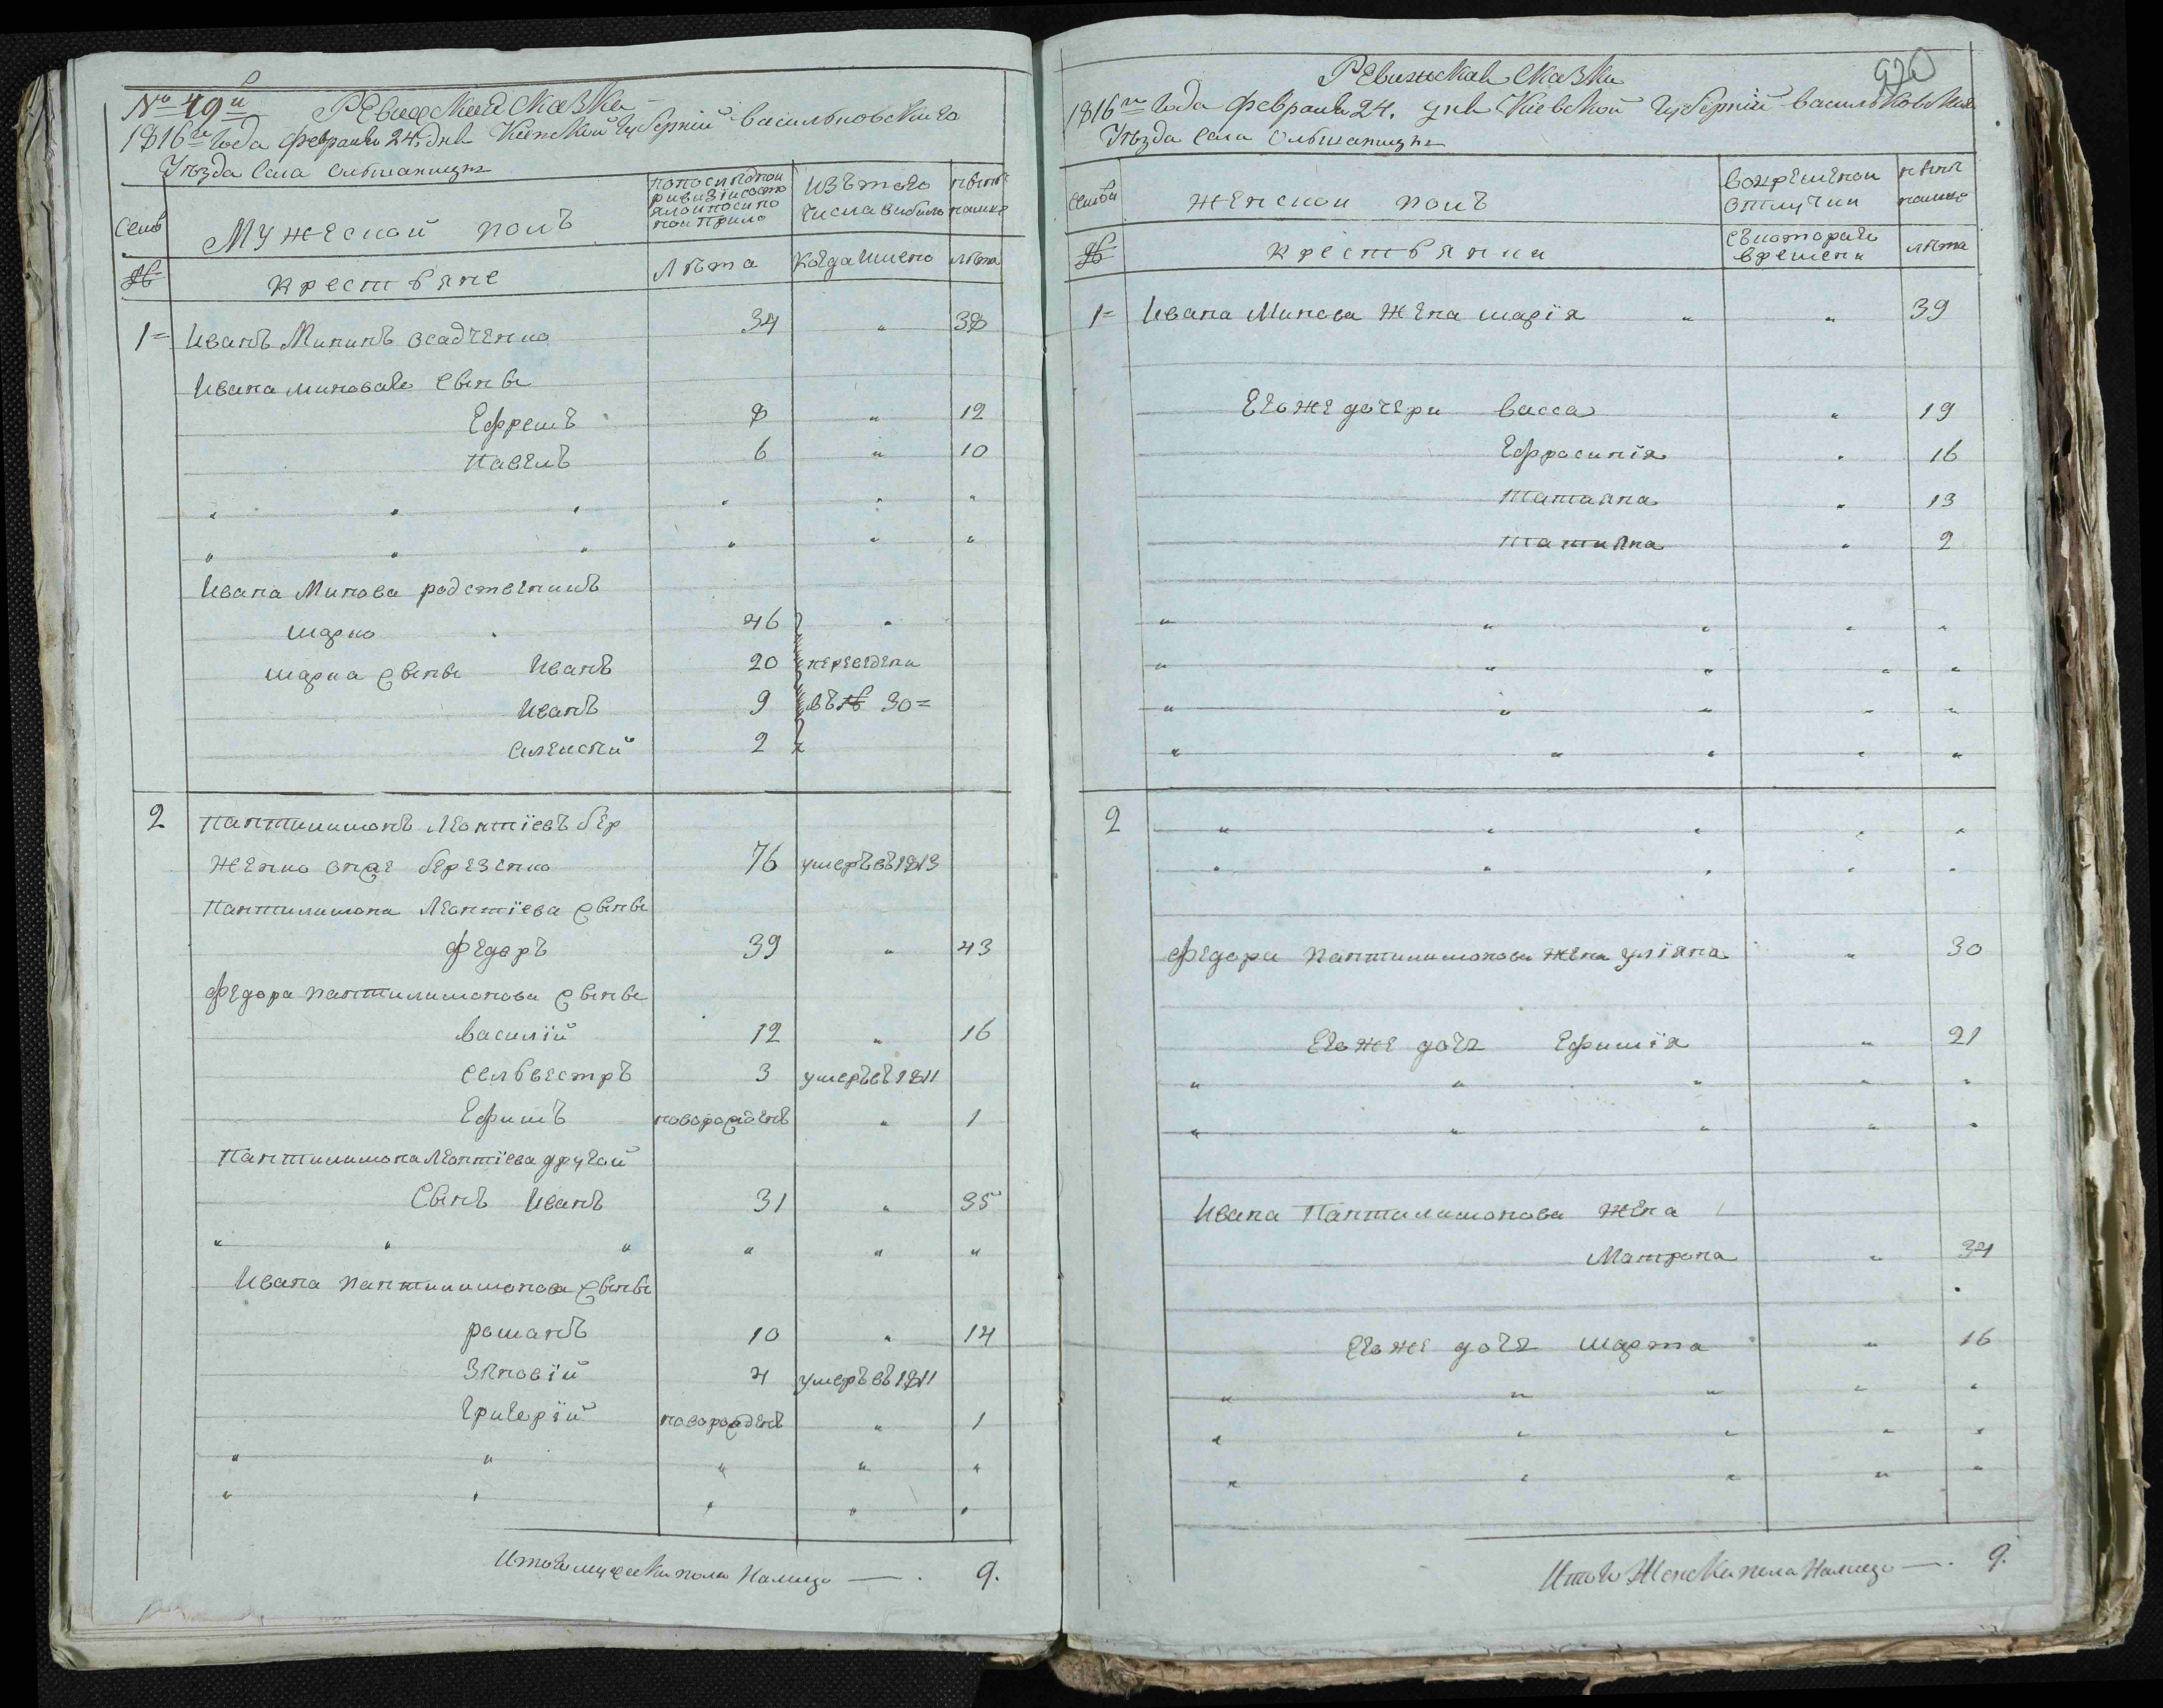 № 49й Ревижская сказка
1816го Года февраля 24. дня Киевской Губерніи васильковского
Уѣзда Села ольшаницы
семьи
Мужеской полъ
попоследней
ревизіи состо
яло и после
ной прибыло
Изътого
числа выбыло
ныне
налицо
№
крестьяне
лѣта
Когда имено
лѣта
1 Иванъ Мининъ осадченко 34 " 38
Ивана минова сыны
Ефремъ 8 " 12
павелъ 6 " 10
" " " " " "
" " " " " "
Ивана Минова родственикъ
марко 46 "
марка сыны Иванъ 20 переведены
Иванъ 9 въ № 30
алексѣй 2
2 пантилимонъ леонтіевъ бер
женко онже березенко 76 умеръ въ 1813
пантилимона леонтіева сыны
федоръ 39 " 43
федора пантилимонова сыны
василій 12 " 16
селвестръ 3 умеръ въ 1811
Ефимъ новорожденъ " 1
пантилимона леонтіева другой
Сынъ Иванъ 31 " 35
" " " " " "
Ивана пантилимонова сыны
романъ 10 " 14
Зѣновій 4 умеръ въ 1811
григорій новорожденъ " 1
" " " " "
" " " " "
Итого мужеска пола Налицо — . 9.
920
Ревижская сказка
1816го Года февраля 24. дня Кіевской Губерніи васильковского
Уѣзда Села ольшаницы
семьи
женской полъ
вовременой
отлучки
ныне
налицо
№
крестьянки
съкотораго
времени
лѣта
1 Ивана Минова жена марія " " 39
Егоже дочери васса " 19
Ефросинія " 16
татаяна " 13
татияна " 2
" " " " "
" " " " "
" " " " "
" " " " "
2 " " " " "
" " " " "
федора пантилимонова жена уліяна " 30
Егоже дочь Ефимія " 21
" " " " "
" " " " "
Ивана Пантилимонова жена
Матрона " 34
Егоже дочь марта " 16
" " " " "
" " " " "
" " " " "
Итого Женска пола Налицо — . 9.